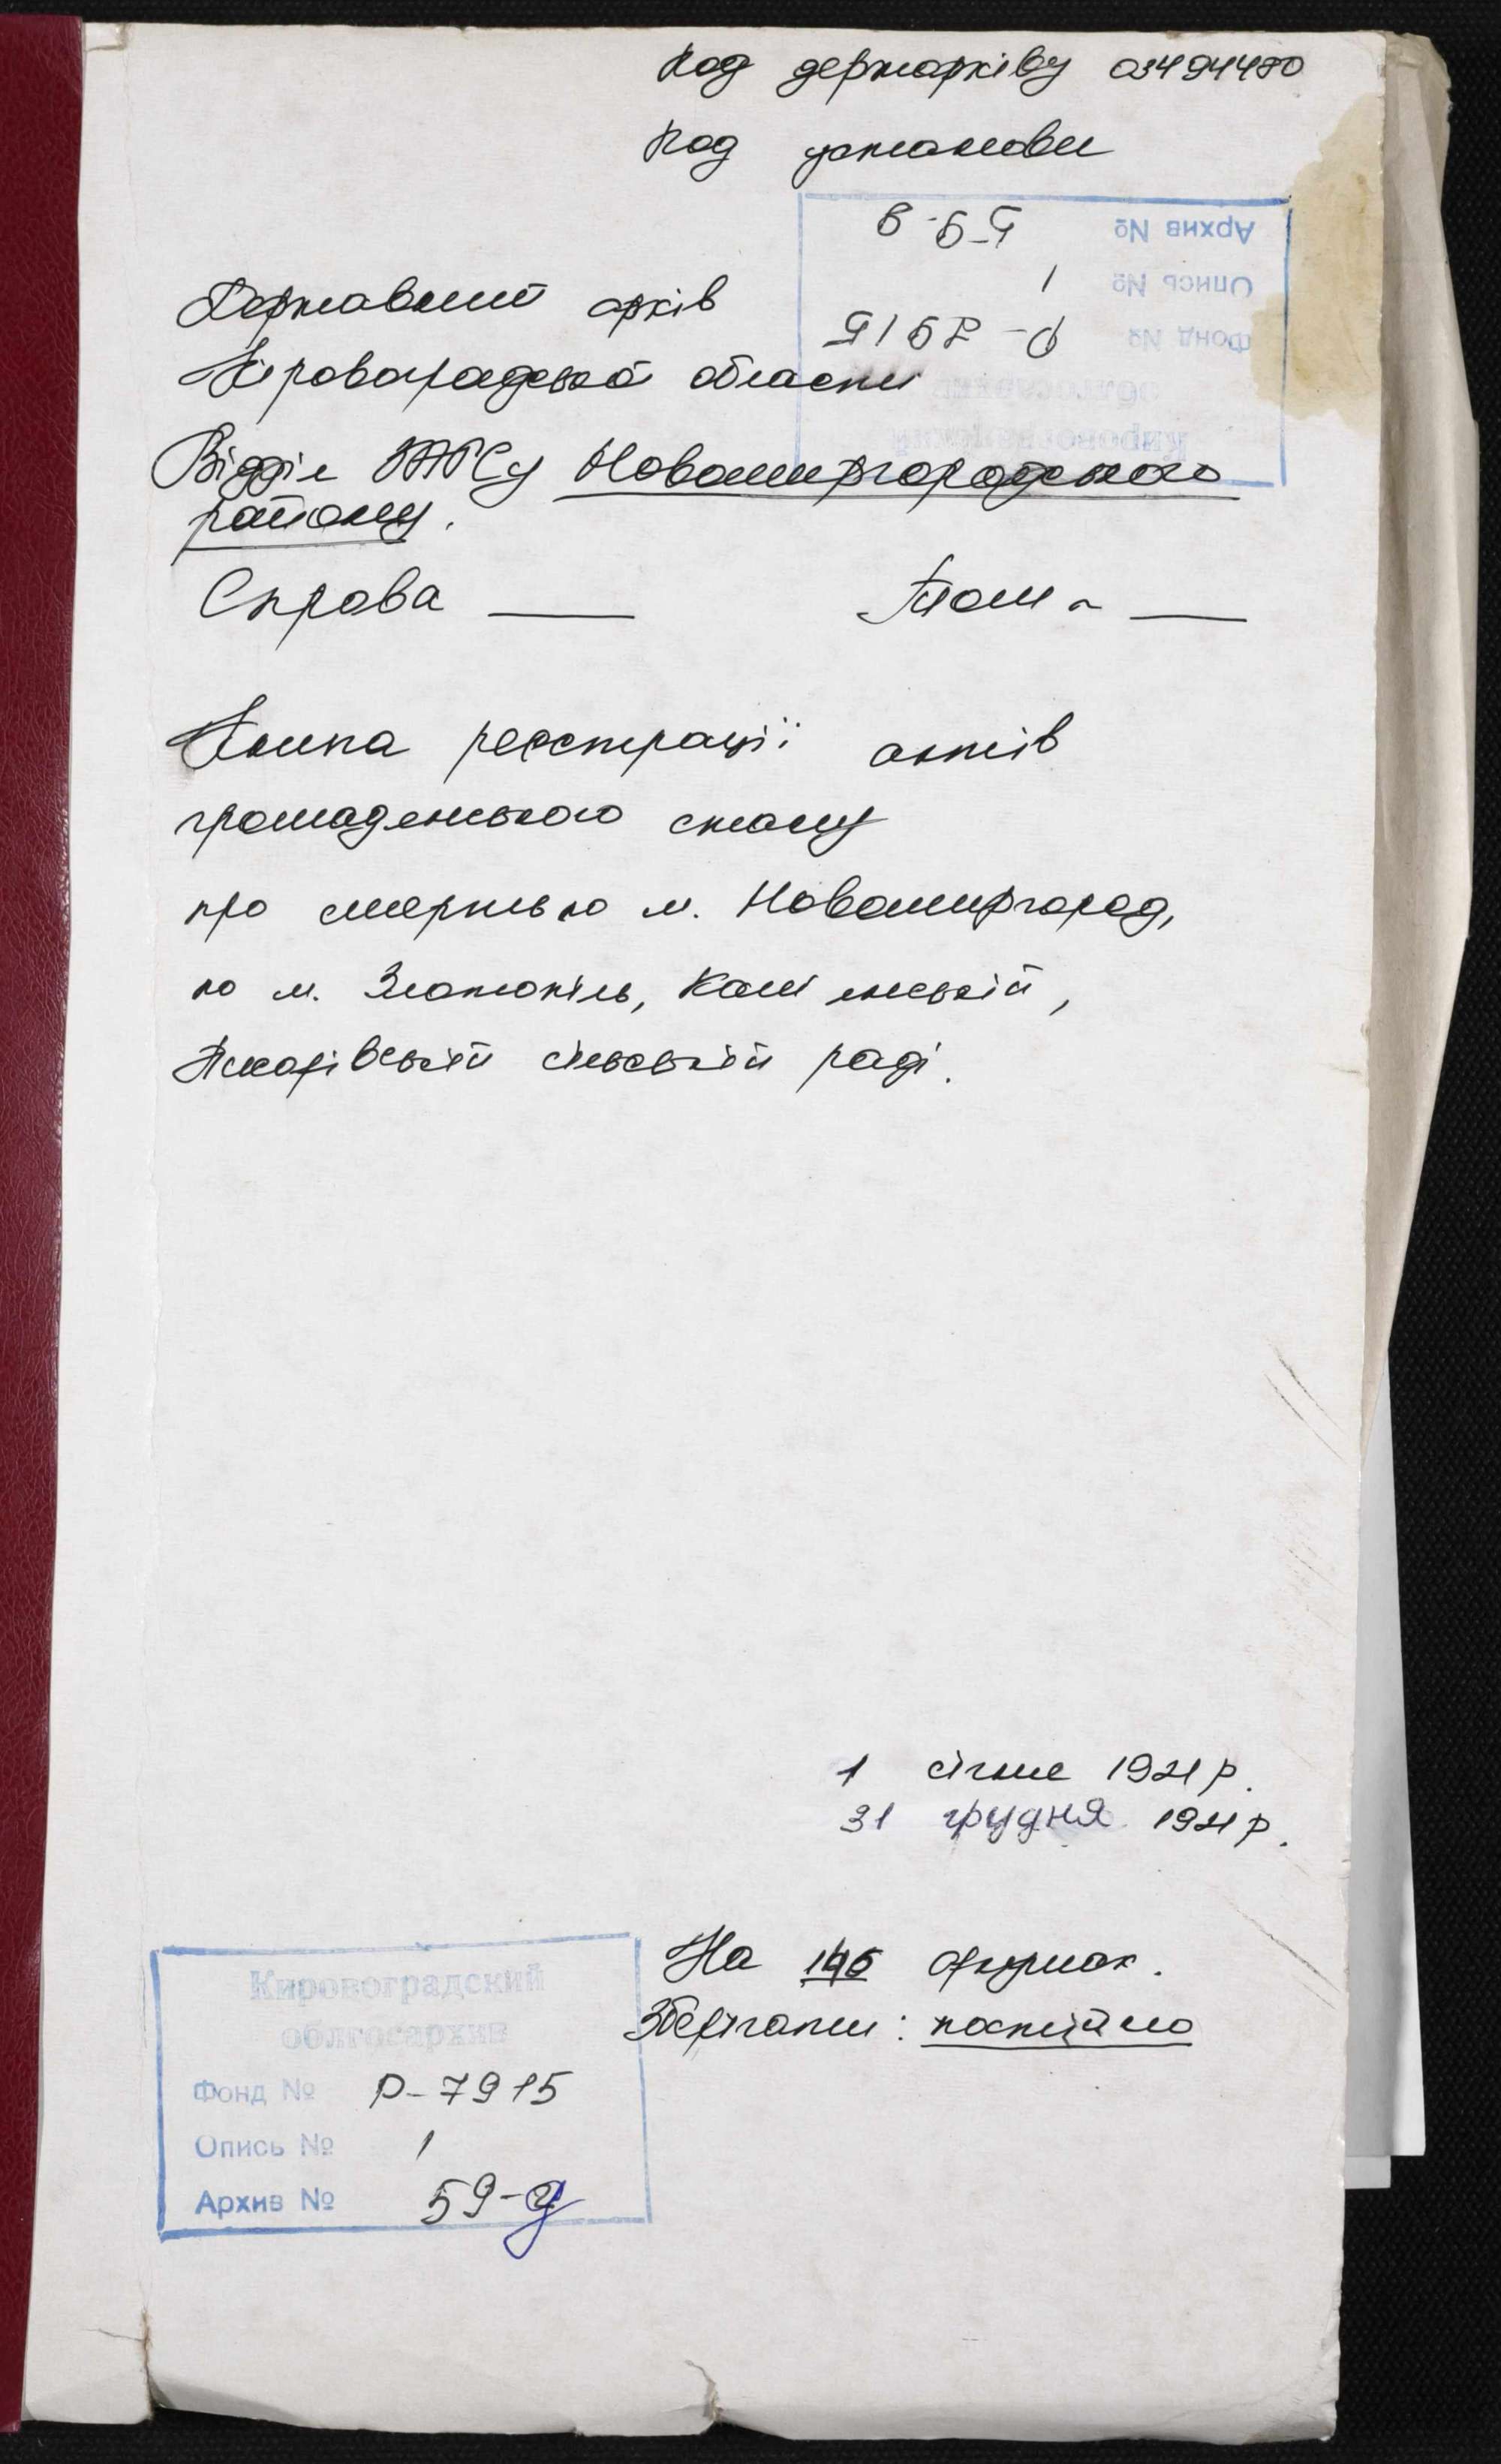 Код держархіву 03494480
Код установи
Архив № 59-в
Опись № 1
Фонд № Р-7915
облгосархив
Кировоградский
Державний архів
Кіровоградської області
Відділ ЗАГСу Новомиргородського
району.
Справа ___ Том ___
Книга реєстрації актів
громадянського стану
про смерть по м. Новомиргород,
по м. Златопіль, Кам'янській,
сільській раді.
1 січня 1921 р.
31 грудня 1921 р.
На 146 аркушах.
Зберігати: постійно
Кировоградский
облгосархив
Фонд № Р-7915
Опись № 1
Архив № 59-